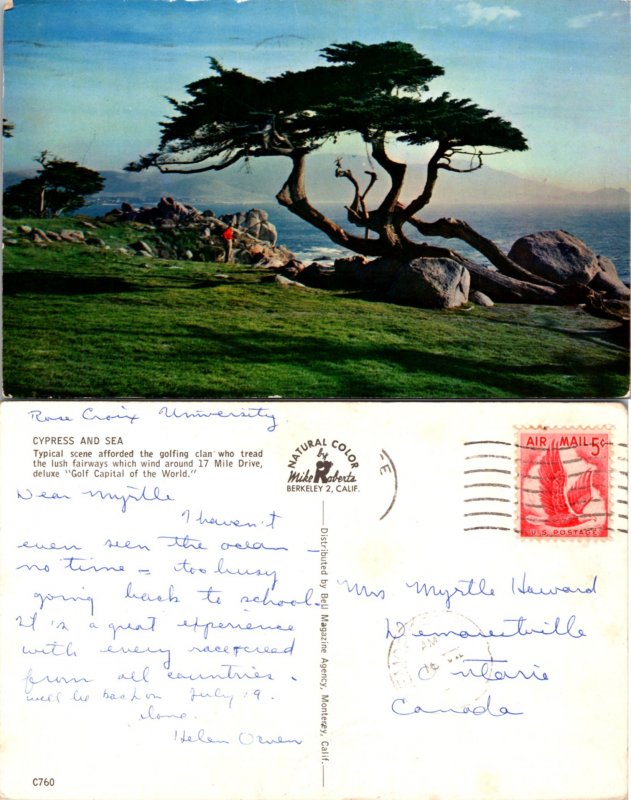 Rose Croix University
CYPRESS AND SEA
Typical scene afforded the golfing clan who tread
the lush fairways which wind around 17 Mile Drive,
deluxe "Golf Capital of the World."
Dear Myrtle
I haven't
even seen the ocean –
no time – too busy
going back to school.
It is a great experience
with every race & creed
from all countries.
will be back on July 19.
Love.
Helen Orven
C760
NATURAL COLOR
by
Mike Roberts
BERKELEY 2, CALIF.
Distributed by Bell Magazine Agency, Monterey, Calif.
AIR MAIL 5¢
U.S. POSTAGE
Mrs Myrtle Howard
Demorestville
Ontario
Canada